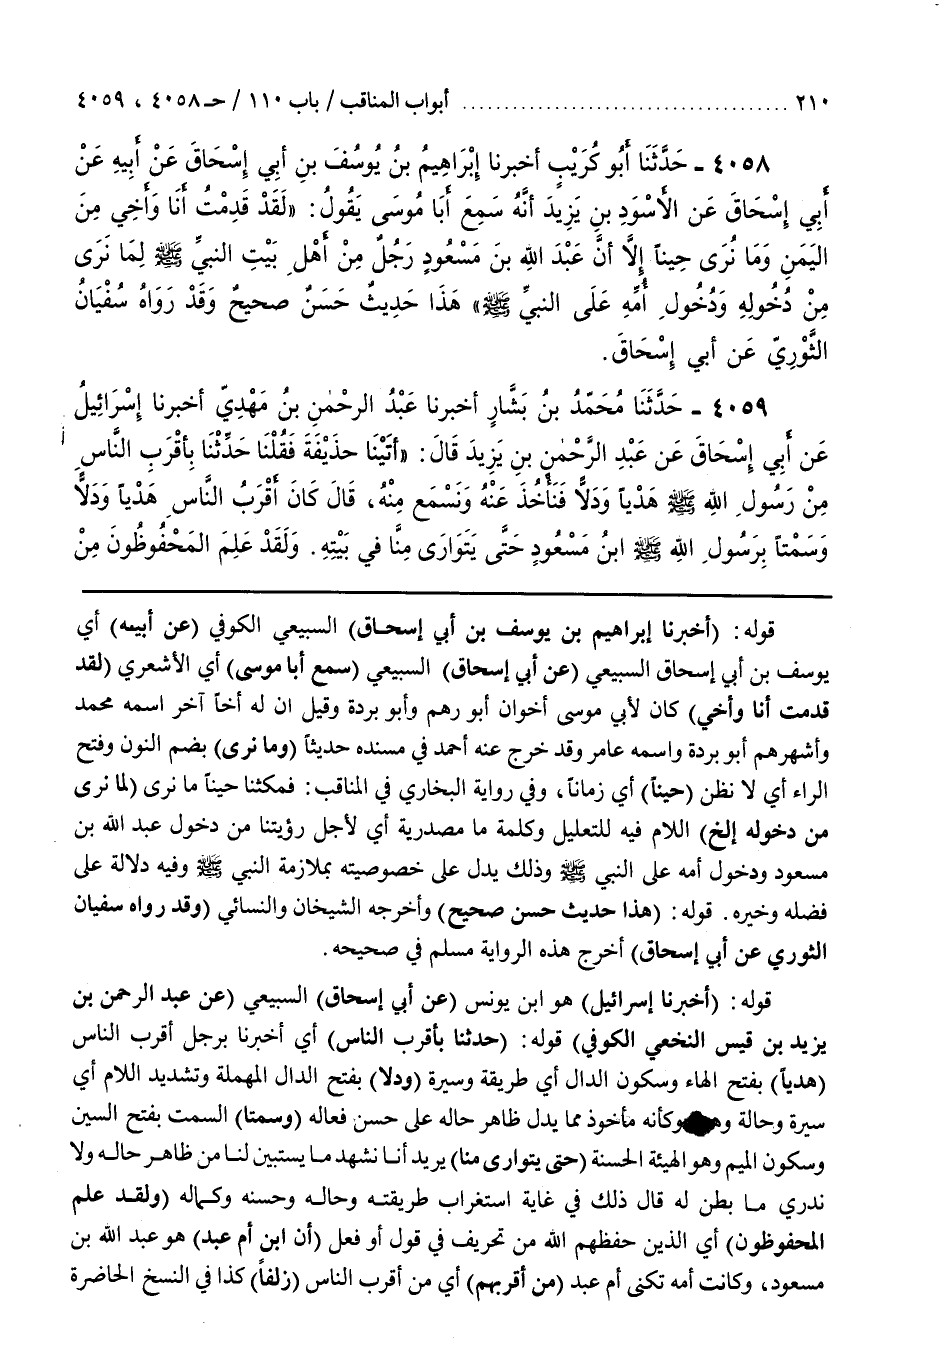 ٢١٠ ........................................ أبواب المناقب / باب ١١٠ / حـ ٤٠٥٨ ، ٤٠٥٩
٤٠٥٨ ـ حَدَّثَنَا أَبُو كُرَيْبٍ أخبرنا إبْرَاهِيمُ بنُ يُوسُفَ بنِ أبي إسْحَاقَ عَنْ أَبِيهِ عَنْ
أَبِي إسْحَاقَ عَنِ الأسْوَدِ بنِ يَزِيدَ أنَّهُ سَمِعَ أبَا مُوسَى يَقُولُ: «لَقَدْ قَدِمْتُ أنَا وَأَخِي مِنَ
اليَمَنِ وَمَا نُرَى حِيناً إلَّا أنَّ عَبْدَ اللهِ بنَ مَسْعُودٍ رَجُلٌ مِنْ أَهْلِ بَيْتِ النبيِّ ﷺ لِمَا نَرَى
مِنْ دُخُولِهِ وَدُخُولِ أُمِّهِ عَلَى النبيِّ ﷺ» هَذَا حَدِيثٌ حَسَنٌ صحيحٌ وَقَدْ رَوَاهُ سُفْيَانُ
الثَّوْرِيّ عَن أبي إسْحَاقَ.
٤٠٥٩ ـ حَدَّثَنَا مُحَمَّدُ بنُ بَشَّارٍ أخبرنا عَبْدُ الرحْمٰنِ بنُ مَهْدِيّ أخبرنا إسْرَائِيلُ
عَن أَبِي إسْحَاقَ عَن عَبْدِ الرَّحْمٰنِ بنِ يَزِيدَ قَالَ: «أتَيْنَا حذَيْفَةَ فَقُلْنَا حَدِّثْنَا بأقْرَبِ النَّاسِ
مِنْ رَسُولِ اللهِ ﷺ هَدْياً وَدَلًّا فَنَأْخُذَ عَنْهُ وَنَسْمَع مِنْهُ، قَالَ كَانَ أَقْرَبُ النَّاسِ هَدْياً وَدَلًّا
وَسَمْتاً بِرَسُولِ اللهِ ﷺ ابنُ مَسْعُودٍ حَتَّى يَتَوَارَى مِنَّا في بَيْتِهِ. وَلَقَدْ عَلِمَ المَحْفُوظُونَ مِنْ
قوله: (أخبرنا إبراهيم بن يوسف بن أبي إسحاق) السبيعي الكوفي (عن أبيه) أي
يوسف بن أبي إسحاق السبيعي (عن أبي إسحاق) السبيعي (سمع أبا موسى) أي الأشعري (لقد
قدمت أنا وأخي) كان لأبي موسى أخوان أبو رهم وأبو بردة وقيل ان له أخاً آخر اسمه محمد
وأشهرهم أبو بردة واسمه عامر وقد خرج عنه أحمد في مسنده حديثاً (وما نرى) بضم النون وفتح
الراء أي لا نظن (حيناً) أي زماناً، وفي رواية البخاري في المناقب: فمكثنا حيناً ما نرى (لما نرى
من دخوله إلخ) اللام فيه للتعليل وكلمة ما مصدرية أي لأجل رؤيتنا من دخول عبد الله بن
مسعود ودخول أمه على النبي ﷺ وذلك يدل على خصوصيته بملازمة النبي ﷺ وفيه دلالة على
فضله وخيره. قوله: (هذا حديث حسن صحيح) وأخرجه الشيخان والنسائي (وقد رواه سفيان
الثوري عن أبي إسحاق) أخرج هذه الرواية مسلم في صحيحه.
قوله: (أخبرنا إسرائيل) هو ابن يونس (عن أبي إسحاق) السبيعي (عن عبد الرحمن بن
يزيد بن قيس النخعي الكوفي) قوله: (حدثنا بأقرب الناس) أي أخبرنا برجل أقرب الناس
(هدياً) بفتح الهاء وسكون الدال أي طريقة وسيرة (ودلا) بفتح الدال المهملة وتشديد اللام أي
سيرة وحالة وكأنه مأخوذ مما يدل ظاهر حاله على حسن فعاله (وسمتا) السمت بفتح السين
وسكون الميم وهو الهيئة الحسنة (حتى يتوارى منا) يريد أنا نشهد ما يستبين لنا من ظاهر حاله ولا
ندري ما بطن له قال ذلك في غاية استغراب طريقته وحاله وحسنه وكماله (ولقد علم
المحفوظون) أي الذين حفظهم الله من تحريف في قول أو فعل (أن ابن أم عبد) هو عبد الله بن
مسعود، وكانت أمه تكنى أم عبد (من أقربهم) أي من أقرب الناس (زلفاً) كذا في النسخ الحاضرة